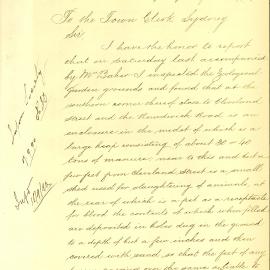 To the Town Clerk Sydney
Sir
I have the honor to report
that on Saturday last accompanied
by Mr Baker I inspected the Zoological
Garden grounds and found that at the
southern corner thereof close to Cleveland
Street and the Randwick Road is an
enclosure in the midst of which is a
large heap consisting of about 30 or 40
tons of manure, near to this and but a
few feet from Cleveland Street is a small
shed used for slaughtering of animals, at
the rear of which is a pit as a receptacle
for blood the contents of which when filled
are deposited in holes dug in the ground
to a depth of but a few inches and then
covered with sand, so that the feet of any